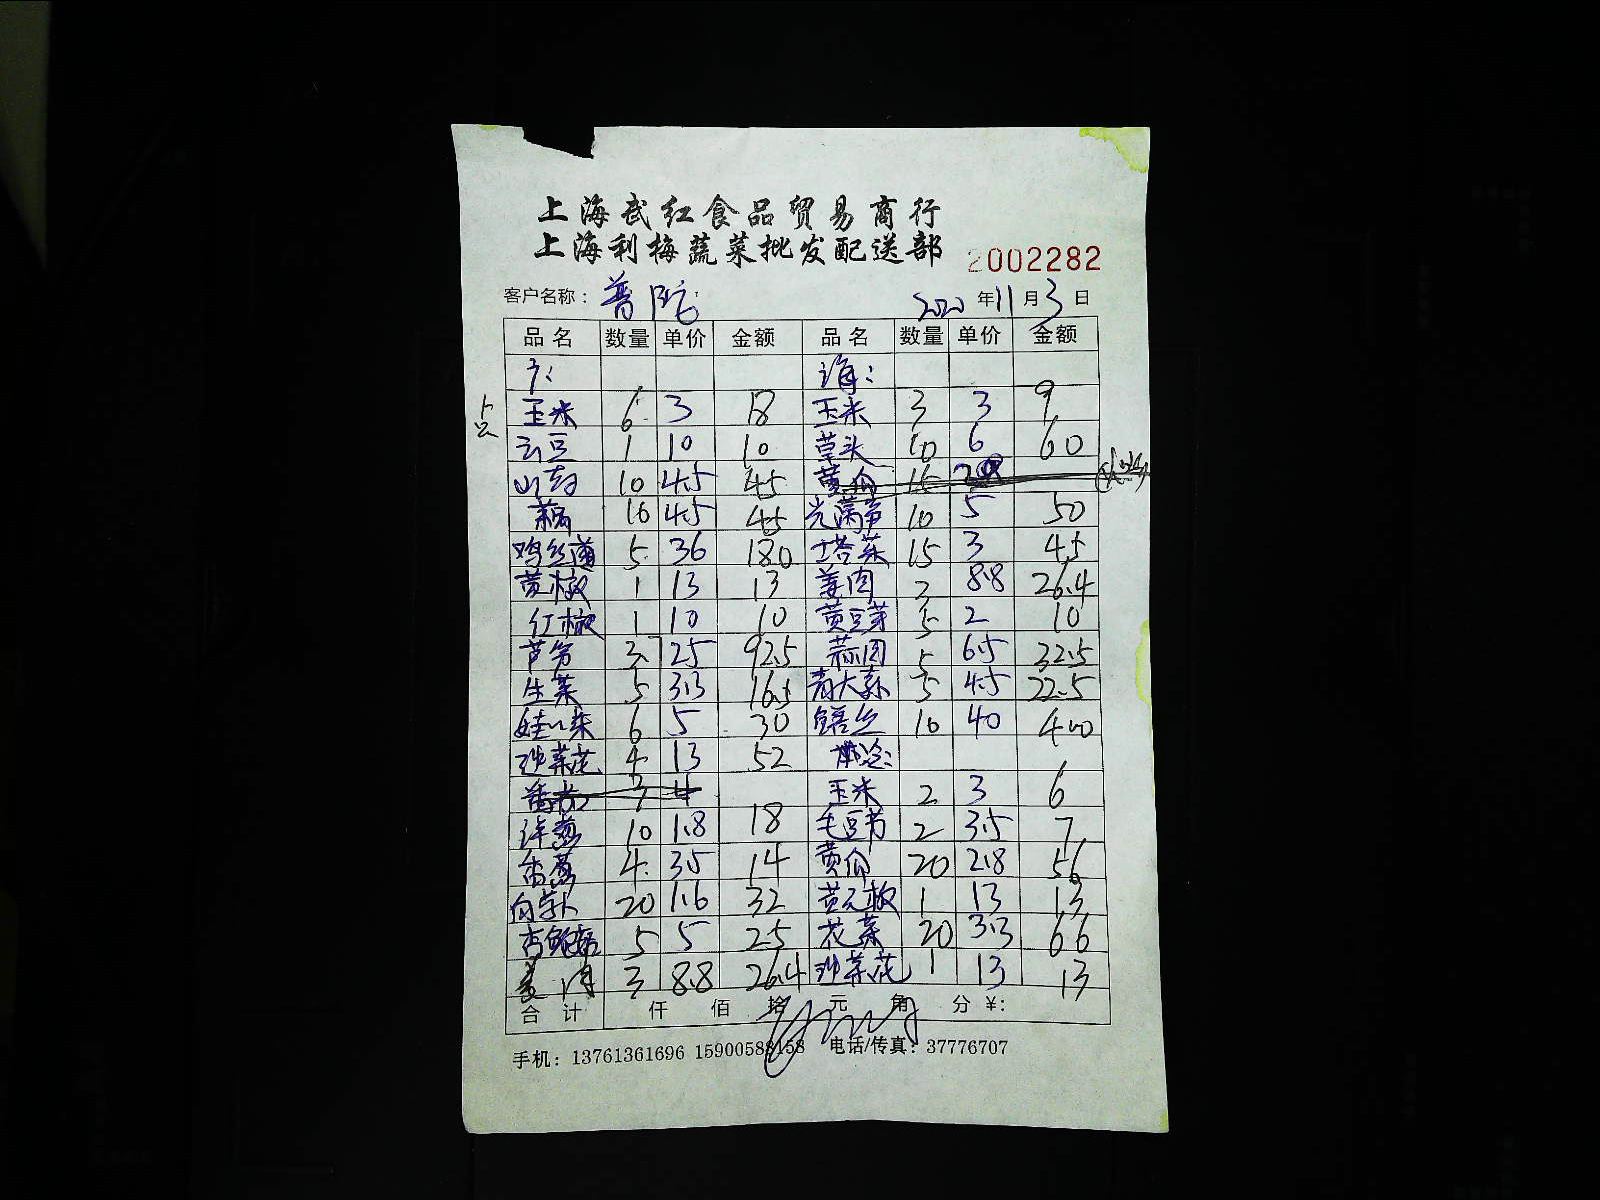 上海武红食品贸易商行
上海利梅蔬菜批发配送部
2002282
客户名称：普陀 2020年11月3日
品名 数量 单价 金额 品名 数量 单价 金额
玉米 6 3 18 玉米 3 3 9
云豆 1 10 10 草头 10 6 60
山药 10 4.5 45 黄瓜 15
藕 10 4.5 45 光莴笋 10 5 50
鸡丝菌 5 36 180 塔菜 15 3 45
黄椒 1 13 13 姜肉 3 8.8 26.4
红椒 1 10 10 黄豆芽 5 2 10
芦笋 3.7 25 92.5 蒜肉 5 6.5 32.5
生菜 5 3.3 16.5 青大蒜 5 4.5 22.5
娃娃菜 6 5 30 10 40 400
西兰花 4 13 52
番茄 3 4 玉米 2 3 6
洋葱 10 1.8 18 毛豆节 2 3.5 7
香葱 4 3.5 14 黄瓜 20 2.8 56
白萝卜 20 1.6 32 黄元椒 1 13 13
杏鲍菇 5 5 25 花菜 20 3.3 66
姜 3 8.8 26.4 1 13 13
合计 仟 佰 拾 元 角 分 ¥:
手机：13761361696 15900588158 电话/传真：37776707